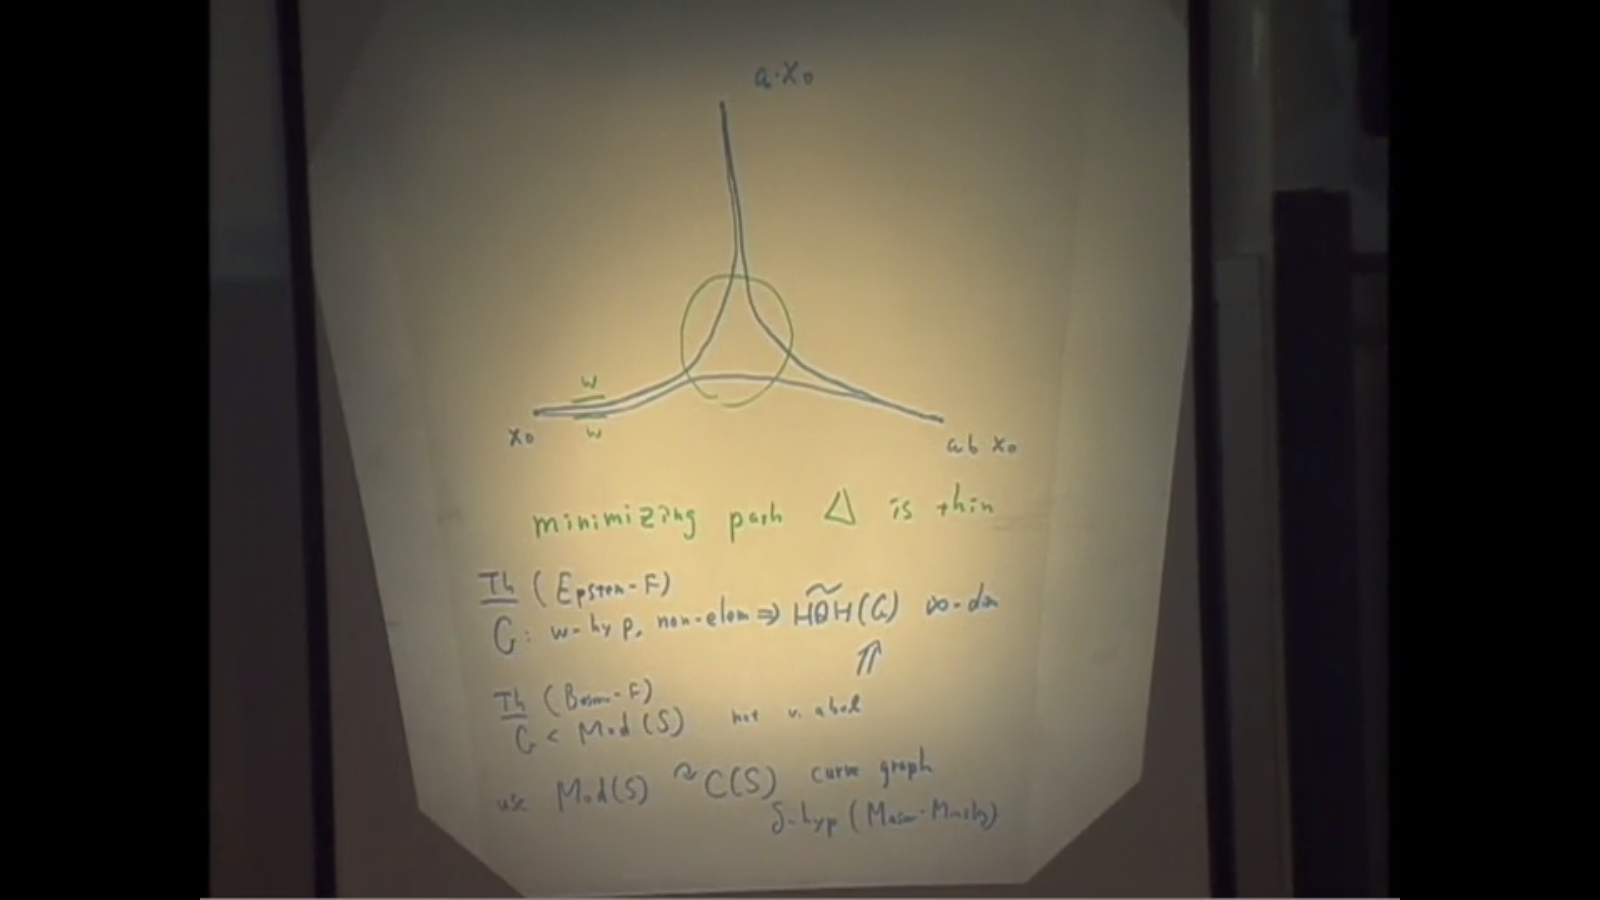 a·x₀
w
w
x₀
ab x₀
minimizing path △ is thin
Th (Epstein-F)
G: w-hyp, non-elem ⇒ H̃QH(G) ∞-dim
⇑
Th (F)
G < Mod(S) not v. abel
use Mod(S) ↷ C(S) curve graph
δ-hyp (Masur-Minsky)